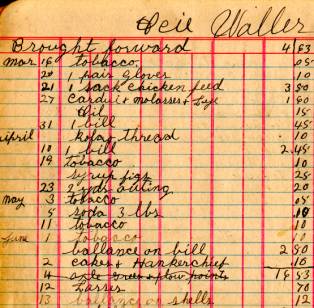 Ocie Waller
Brought forward 4 63
Mar 16 tobacco .05
20 1 pair glover 10
21 1 sack chicken feed 3 50
27 Cardui & molasses & Lye 1 90
Oil 15
31 1 bill 45
april kofay thread .10
10 1 bill 2.45
19 tobacco 10
syrup figs 25
23 2 yds outing 20
may 3 tobacco 05
5 soda 3 lbs 10
11 tobacco 10
June 1 tobacco 10
ballance on bill 2.50
2 cakes & Hankerchief .10
4 plow points 16 53
12 Lasses 70
13 ballance on shells 12